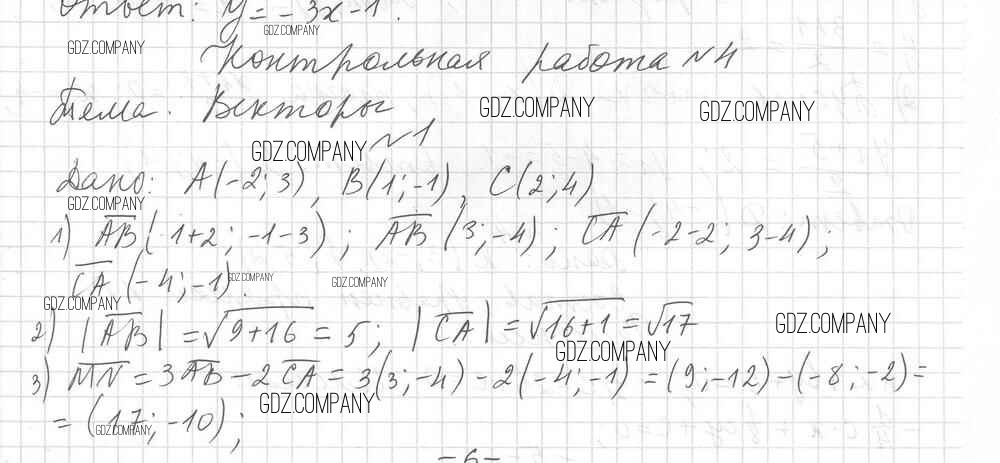 Ответ: y = -3x-1.
GDZ.COMPANY
GDZ.COMPANY
Контрольная работа №4
Тема. Векторы
GDZ.COMPANY
GDZ.COMPANY
GDZ.COMPANY
№1
Дано: A(-2; 3), B(1; -1), C(2; 4)
GDZ.COMPANY
1) AB(1+2; -1-3); AB(3; -4); CA(-2-2; 3-4);
CA(-4; -1).
GDZ.COMPANY
GDZ.COMPANY
GDZ.COMPANY
2) |AB| = √9+16 = 5; |CA| = √16+1 = √17
GDZ.COMPANY
GDZ.COMPANY
3) MN = 3AB - 2CA = 3(3; -4) - 2(-4; -1) = (9; -12) - (-8; -2) =
GDZ.COMPANY
= (17; -10);
GDZ.COMPANY
-6-